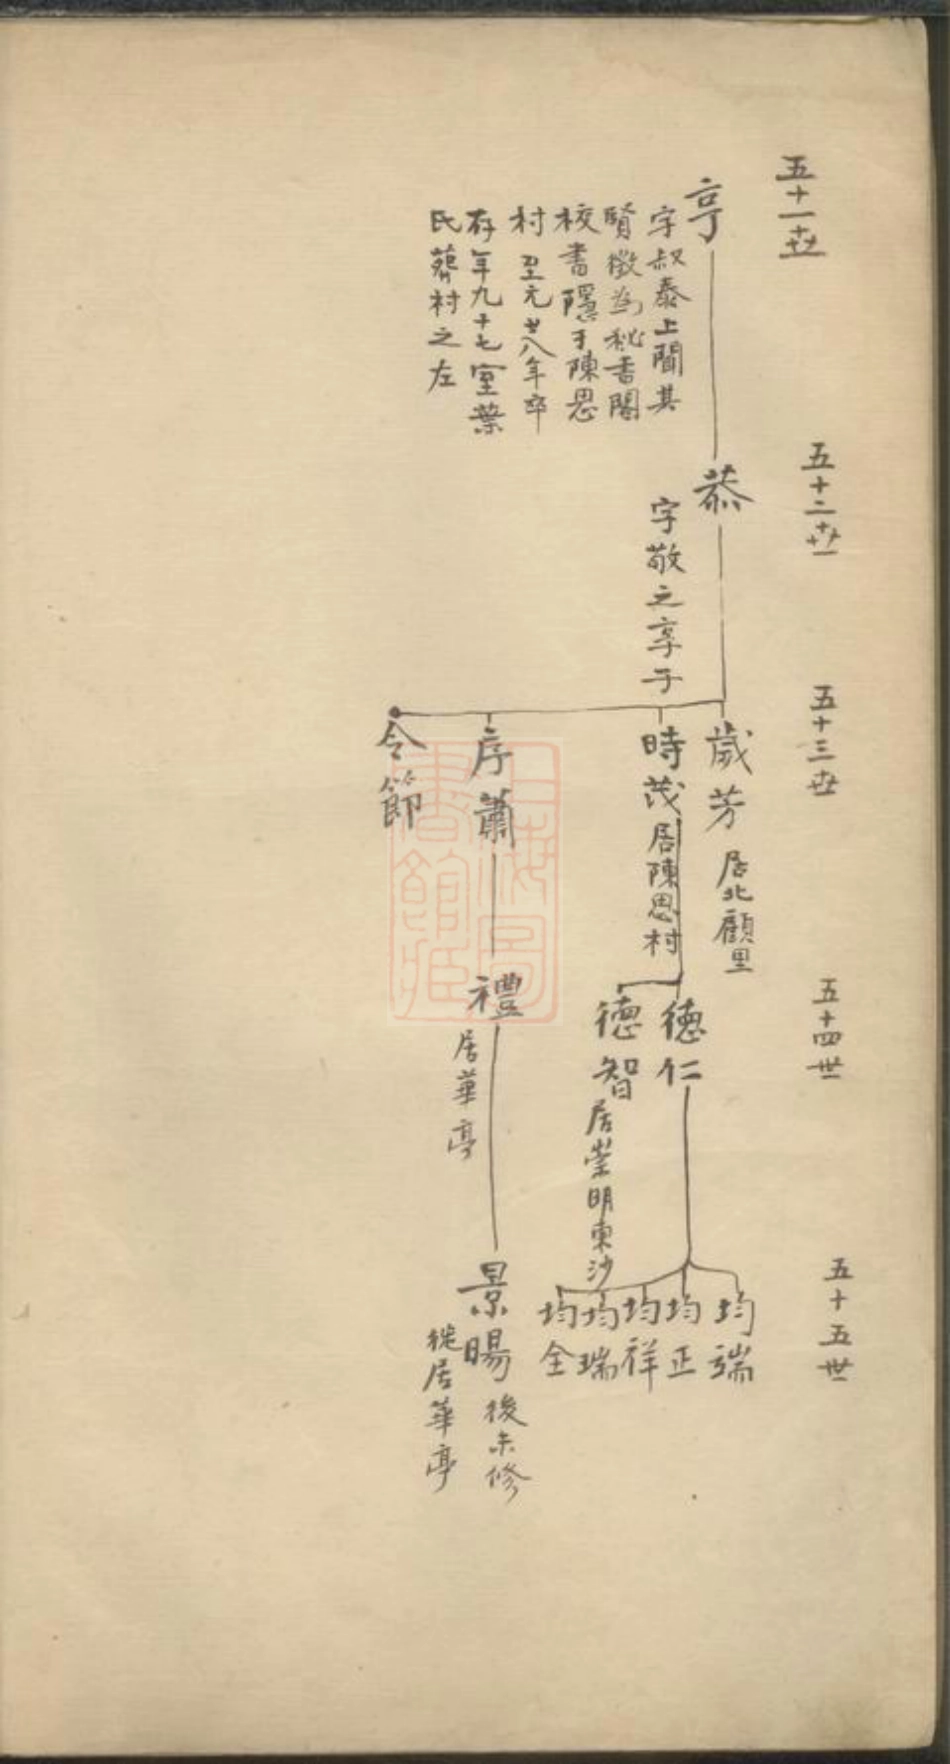 五十一世
亨
字叔泰上聞其
賢徵為秘書閣
校書隱于陳思
村至元廿八年卒
存年九十七室葉
氏葬村之左
五十二世
恭
字敬之享子
五十三世
歲芳 居北顧里
時茂 居陳思村
序蕭
令節
五十四世
德仁
德智 居崇明東沙
禮
居華亭
五十五世
均端
均正
均祥
均瑞
均全
景暘 後未修
徙居華亭
上海圖
書館藏